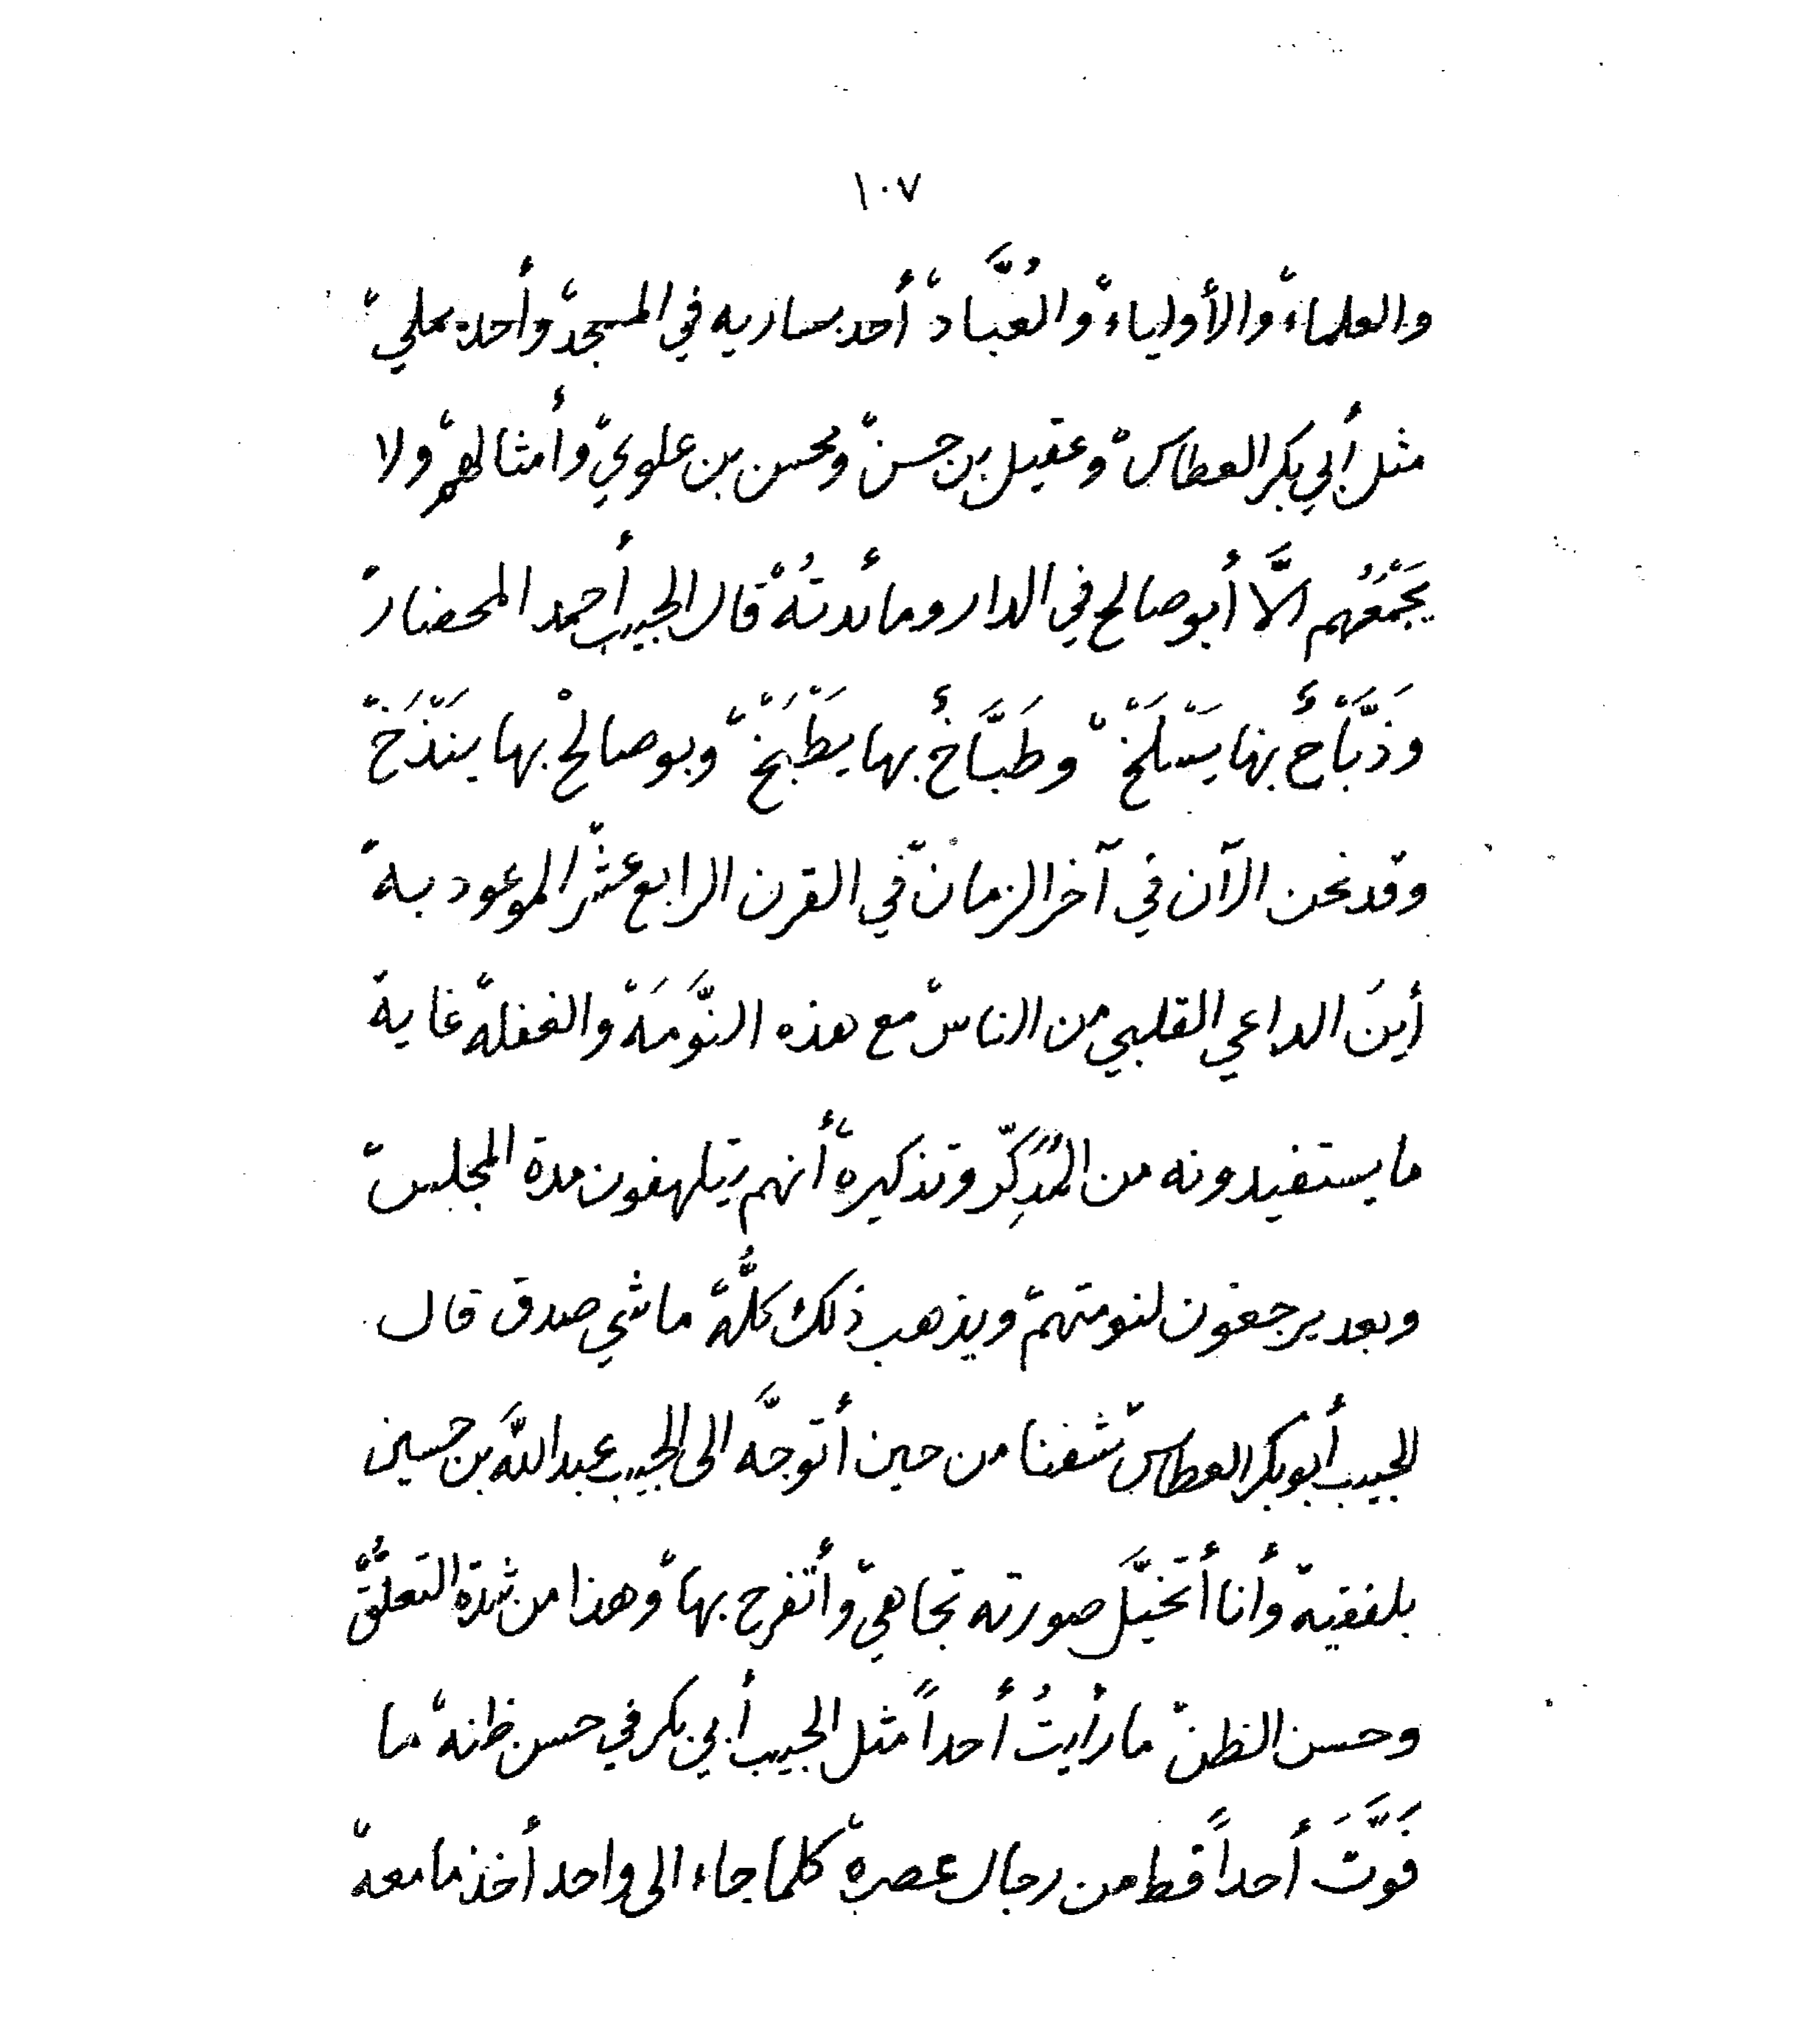 ١٠٧
والعلماء، والأولياء، والعُبَّاد، أحد بساريه في المسجد، وأحد بعلي،
مثل أبي بكر العطاس، وعقيل بن حسن، ومحسن بن علوي، وأمثالهم، ولا
يَجْمَعُهُم الَّا أبو صالح في الدار ومائدتُه، قال الحبيب أحمد المحضار،
وَذَبَّاحٌ بها يَسْلَخْ، وطَبَّاخٌ بها يَطْبَخْ، وبو صالحْ بها يَنْذَخْ،
وقد نحن الآن في آخر الزمان، في القرن الرابع عشر، الموعود به،
أينَ الداعي القلبي من الناس، مع هذه النَّوْمَهْ، والغفله، غاية
ما يستفيدونه من المُذَكِّر وتذكيره، أنهم يتلهفون مدة المجلس،
وبعد يرجعون لنومتهم، ويذهب ذلك كلُّه، ماشي صدق قال
الحبيب أبو بكر العطاس، شفنا من حين أتوجَّه الى الحبيب عبدالله بن حسين
بلفقيه، وأنا أتخيَّل صورته تجاهي، وأتفرج بها، وهذا من شدة التعلُّق،
وحسن الظن، ما رأيتُ أحداً مثل الحبيب أبي بكر في حسن ظنه، ما
فَوَّتَ أحداً قط من رجال عصره، كلما جاء الى واحد أخذ ما معه،